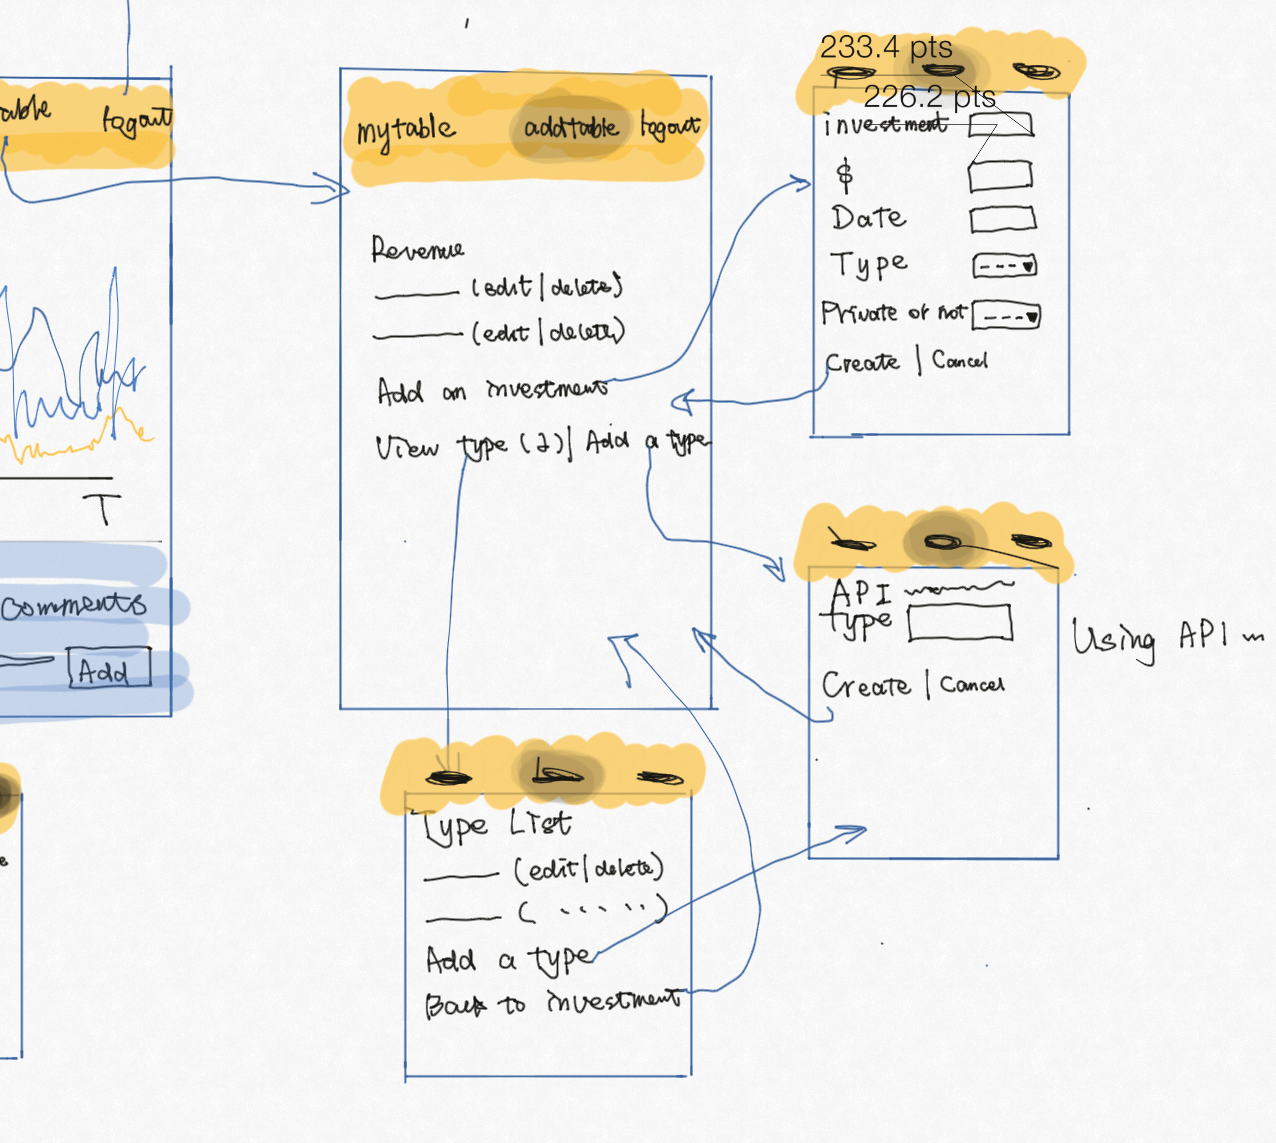 able logout
T
Comments
Add
e
mytable addtable logout
Revenue
(edit | delete)
(edit | delete)
Add an investment
View type (2) | Add a type
233.4 pts
226.2 pts
investment
$
Date
Type ----
Private or not ----
Create | Cancel
API
type
Create | Cancel
Using API
Type List
(edit | delete)
( ..... )
Add a type
Back to investment